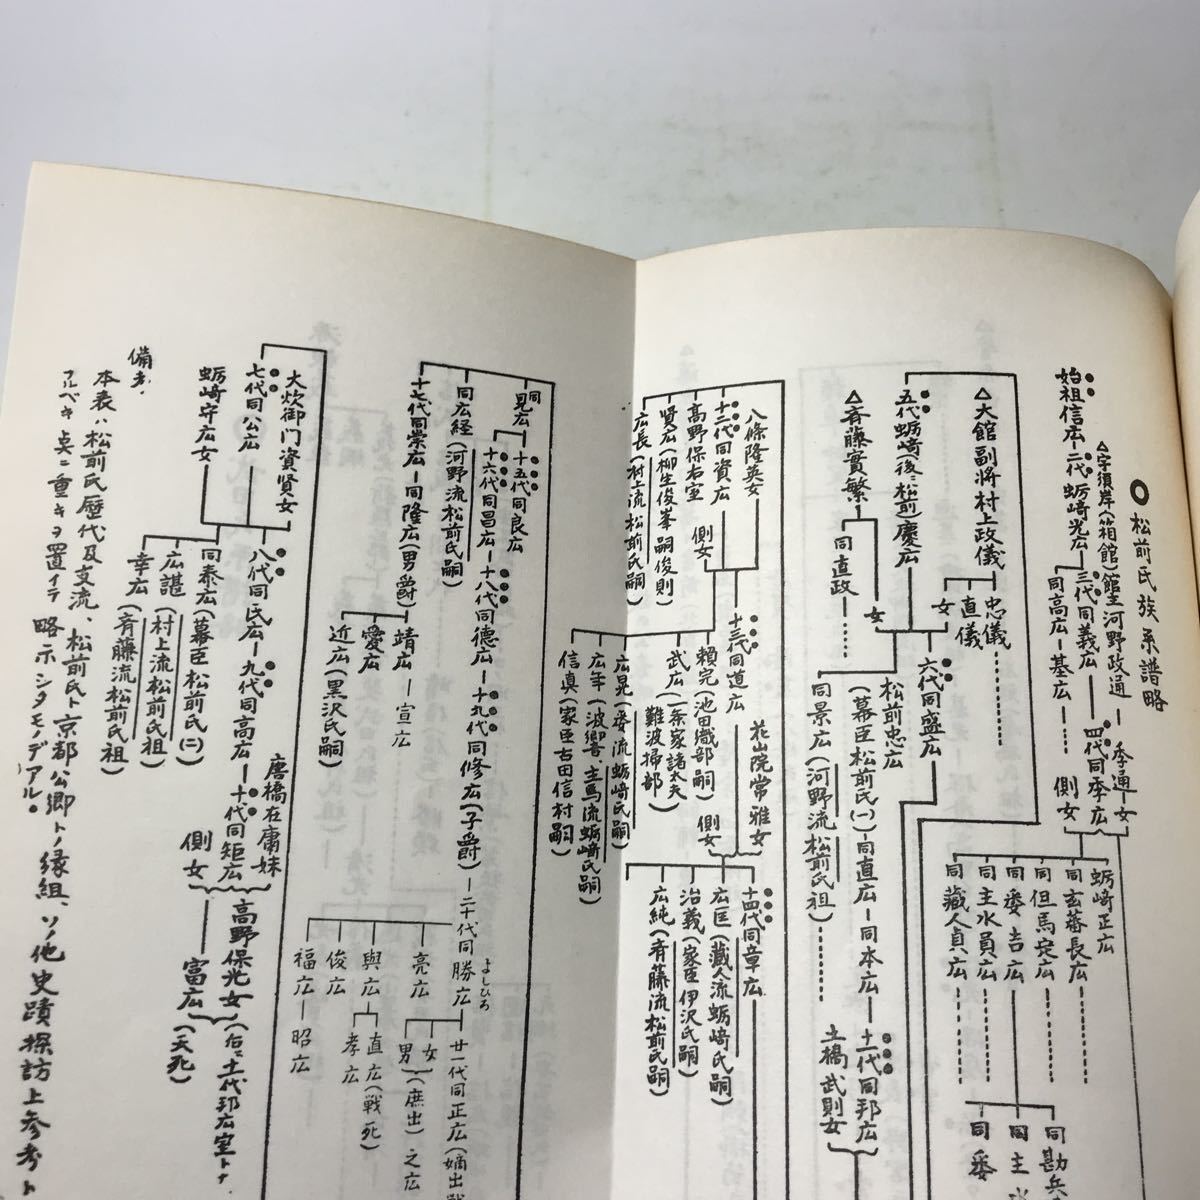 松前氏族系譜略
△宇須岸(箱館)館主河野政通―季通女
始祖信広―二代蛎崎光広
三代同義広―四代同季広
側女
同高広―基広
蛎崎正広
同玄蕃長広
同但馬定広
同委吉広
同主水員広
同蔵人貞広
同勘兵
同主水
同委
△大館副将村上政儀
忠儀
直儀
女
五代蛎崎(後ニ松前)慶広
△斉藤實繁
女
同直政
六代同盛広
松前忠広
(幕臣松前氏(一)―同直広―同本広
同景広(河野流松前氏祖)
十一代同邦広
土橋武則女
八條隆英女
十二代同資広
側女
高野保右室
賢広(柳生俊峯嗣俊則)
広長(村上流松前氏嗣)
十三代同道広
花山院常雅女
側女
頼完(池田織部嗣)
武広(一条家諸太夫)
難波掃部
広晃(委流蛎崎氏嗣)
広年(波響、主馬流蛎崎氏嗣)
信真(家臣古田信村嗣)
十四代同章広
広匡(蔵人流蛎崎氏嗣)
治義(家臣伊沢氏嗣)
広純(斉藤流松前氏嗣)
同見広
十五代同良広
十六代同昌広―十八代同徳広―十九代同修広(子爵)―二十代同勝広
よしひろ
同広経(河野流松前氏嗣)
十七代同崇広―同隆広(男爵)
靖広―宣広
愛広
近広(黒沢氏嗣)
亮広
與広
俊広
福広―昭広
廿一代同正広(嫡出
女
男
(庶出)之広
直広(戦死)
孝広
大炊御門資賢女
七代同公広
蛎崎守広女
八代同氏広―九代同高広―十代同矩広
同泰広(幕臣松前氏(二)
広諶(村上流松前氏祖)
幸広(斉藤流松前氏祖)
唐橋在庸妹
側女
高野保光女(右ニ十一代邦広室トナ
富広(夭死)
備考、
本表ハ松前氏歴代及支流、松前氏ト京都公卿トノ縁組、ソノ他史蹟探訪上参考ト
フルベキ点ニ重キヲ置イテ略示シタモノデアル。